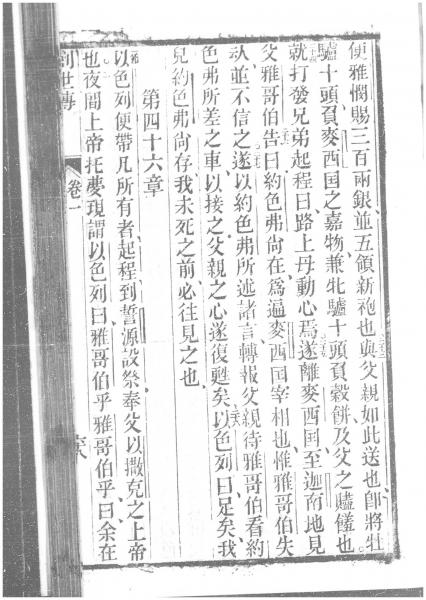 便雅憫賜三百兩銀並五領新袍也與父親如此送也卽將壯
驢十頭負麥西国之嘉物兼牝驢十頭負穀餅及父之贐儀也
就打發兄弟起程曰路上毋動心焉遂離麥西国至迦南地見
父雅哥伯告曰約色弗尚在爲遍麥西国宰相也惟雅哥伯失
㳄並不信之遂以約色弗所述諸言轉報父親待雅哥伯看約
色弗所差之車以接之父親之心遂復甦矣以色列曰足矣我
兒約色弗尚存我未死之前必往見之也
第四十六章
以色列便帶凡所有者起程到誓源設祭奉父以撒克之上帝
也夜間上帝托夢現謂以色列曰雅哥伯乎雅哥伯乎曰余在
創世傳
卷一